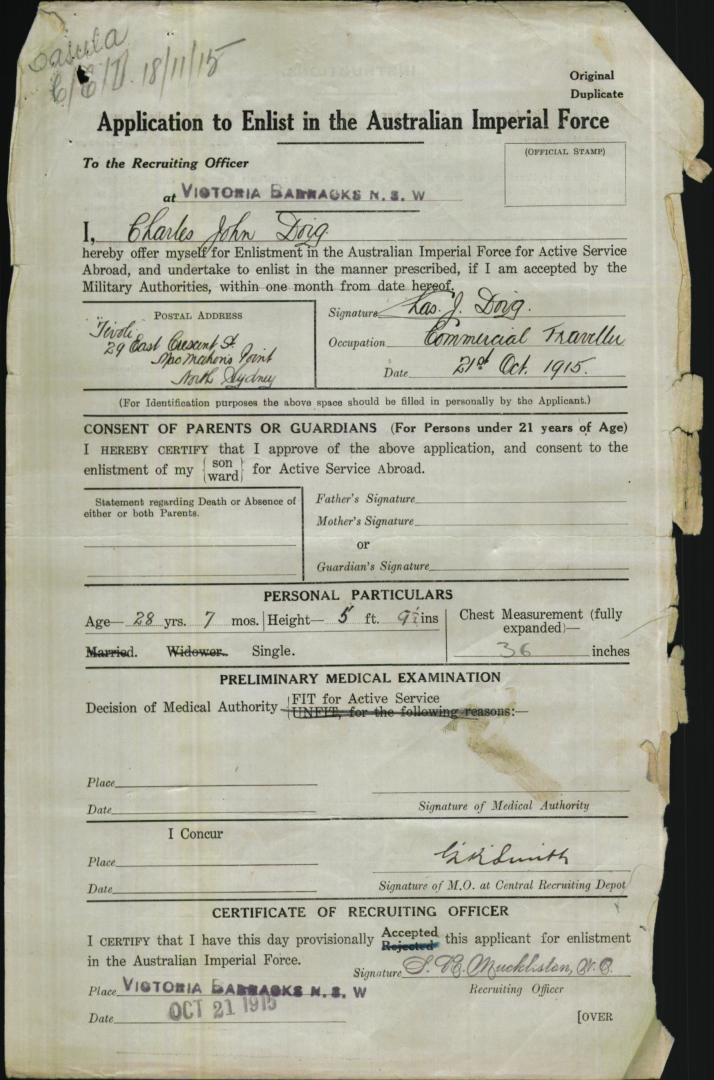 Casula
18/11/15
Original
Duplicate
Application to Enlist in the Australian Imperial Force
To the Recruiting Officer
(OFFICIAL STAMP)
at VICTORIA BARRACKS N. S. W
I, Charles John Doig
hereby offer myself for Enlistment in the Australian Imperial Force for Active Service
Abroad, and undertake to enlist in the manner prescribed, if I am accepted by the
Military Authorities, within one month from date hereof.
POSTAL ADDRESS
"Tivoli"
29 East Crescent St
McMahons Point
North Sydney
Signature Chas. J. Doig.
Occupation Commercial Traveller
Date 21st Oct. 1915.
(For Identification purposes the above space should be filled in personally by the Applicant.)
CONSENT OF PARENTS OR GUARDIANS (For Persons under 21 years of Age)
I HEREBY CERTIFY that I approve of the above application, and consent to the
enlistment of my { son ward } for Active Service Abroad.
Statement regarding Death or Absence of
either or both Parents.
Father's Signature
Mother's Signature
or
Guardian's Signature
PERSONAL PARTICULARS
Age— 28 yrs. 7 mos. Height— 5 ft. 9½ ins
Chest Measurement (fully
expanded)—
Married. Widower. Single.
36 inches
PRELIMINARY MEDICAL EXAMINATION
Decision of Medical Authority { FIT for Active Service
UNFIT, for the following reasons:—
Place
Date
Signature of Medical Authority
I Concur
Place
Smith
Date
Signature of M.O. at Central Recruiting Depot
CERTIFICATE OF RECRUITING OFFICER
I CERTIFY that I have this day provisionally Accepted Rejected this applicant for enlistment
in the Australian Imperial Force.
Signature
Place VICTORIA BARRACKS N. S. W
Recruiting Officer
OCT 21 1915
Date
[OVER